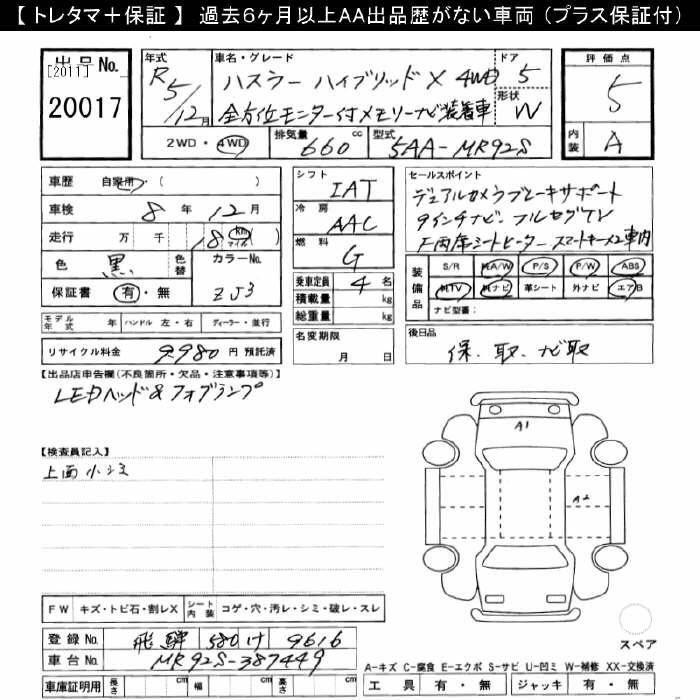 【 トレタマ＋保証 】 過去６ヶ月以上ＡＡ出品歴がない車両 （プラス保証付）
出品No.
[2011]
20017
年式
R5/12月
車名・グレード
ハスラー ハイブリッドX 4WD
全方位モニター付メモリーナビ装着車
ドア
5
形状
W
評価点
5
内装
A
2WD・4WD
排気量
660cc
型式
5AA-MR92S
車歴 自家用 ( )
車検 8年 12月
走行 万 千 18 km マイル ( )
色 黒
色替
カラーNo.
ZJ3
保証書 有・無
モデル年式 年 ハンドル 左・右 ディーラー・並行
リサイクル料金 9980 円 預託済
シフト
IAT
冷房
AAC
燃料
G
乗車定員 4 名
積載量 kg
総重量 kg
名変期限
月 日
セールスポイント
デュアルカメラブレーキサポート
9インチナビ、フルセグTV
F両席シートヒーター スマートキーX2車内
装備品
S/R 純A/W P/S P/W ABS
純TV 純ナビ 革シート 外ナビ エアB
ナビ型番：
後日品
保、取、ナビ取
【出品店申告欄(不良箇所・欠品・注意事項等)】
LEDヘッド&フォグランプ
【検査員記入】
上面小キズ
A1
A2
スペア
FW キズ・トビ石・割レX シート内装 コゲ・穴・汚レ・シミ・破レ・スレ
登録No. 飛騨 580 け 9616
車台No. MR92S-387449
車庫証明用 長さ cm 幅 cm 高さ cm
A-キズ C-腐食 E-エクボ S-サビ U-凹ミ W-補修 XX-交換済
工具 有・無 ジャッキ 有・無